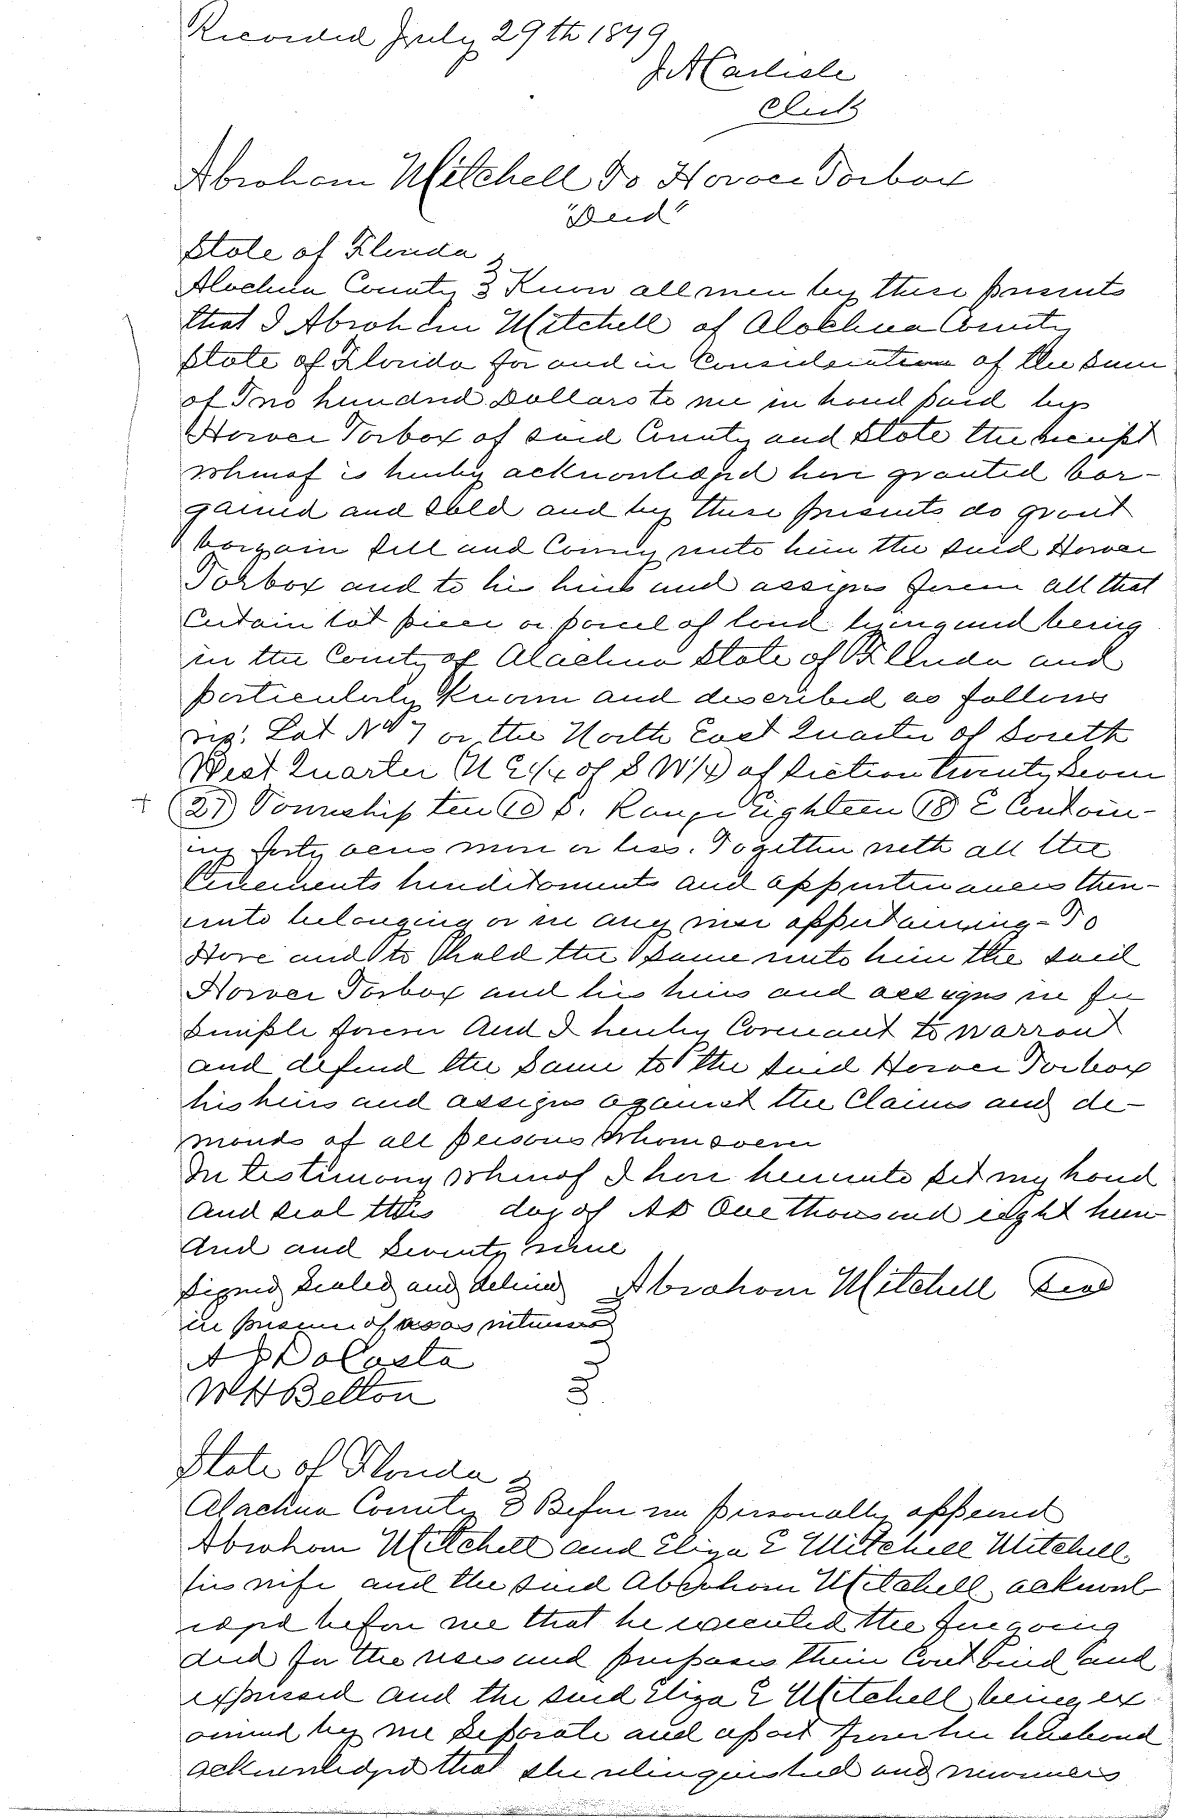 Recorded July 29th 1879
J A Carlisle
Clerk
Abraham Mitchell To Horace Torbox
"Deed"
State of Florida
Alachua County } Know all men by these presents
that I Abraham Mitchell of Alachua County
State of Florida for and in Consideration of the sum
of Two hundred Dollars to me in hand paid by
Horace Torbox of said County and State the receipt
whereof is hereby acknowledged have granted bar-
gained and sold and by these presents do grant
bargain sell and Convey unto him the said Horace
Torbox and to his heirs and assigns forever all that
Certain lot piece or parcel of land lying and being
in the County of Alachua State of Florida and
particularly known and described as follows
viz: Lot No 7 or the North East Quarter of South
West Quarter (N E 1/4 of S W 1/4) of Section twenty Seven
+ (27) Township ten (10) S. Range Eighteen (18) E Contain-
ing forty acres more or less. Together with all the
tenements hereditaments and appurtenances there-
unto belonging or in any wise appertaining - To
Have and to hold the same unto him the said
Horace Torbox and his heirs and assigns in fee
simple forever And I hereby Covenant to warrant
and defend the same to the said Horace Torbox
his heirs and assigns against the Claims and de-
mands of all persons whomsoever
In testimony whereof I have hereunto set my hand
and seal this day of AD One thousand eight hun-
dred and seventy nine
Signed Sealed and delivered Abraham Mitchell Seal
in presence of us as witnesses
A J DaCosta
W H Belton
State of Florida
Alachua County } Before me personally appeared
Abraham Mitchell and Eliza E Mitchell Mitchell
his wife and the said Abraham Mitchell acknowl
edged before me that he executed the foregoing
deed for the uses and purposes therein Contained and
expressed and the said Eliza E Mitchell being ex
amined by me Separate and apart from her husband
acknowledged that she relinquished and renounces